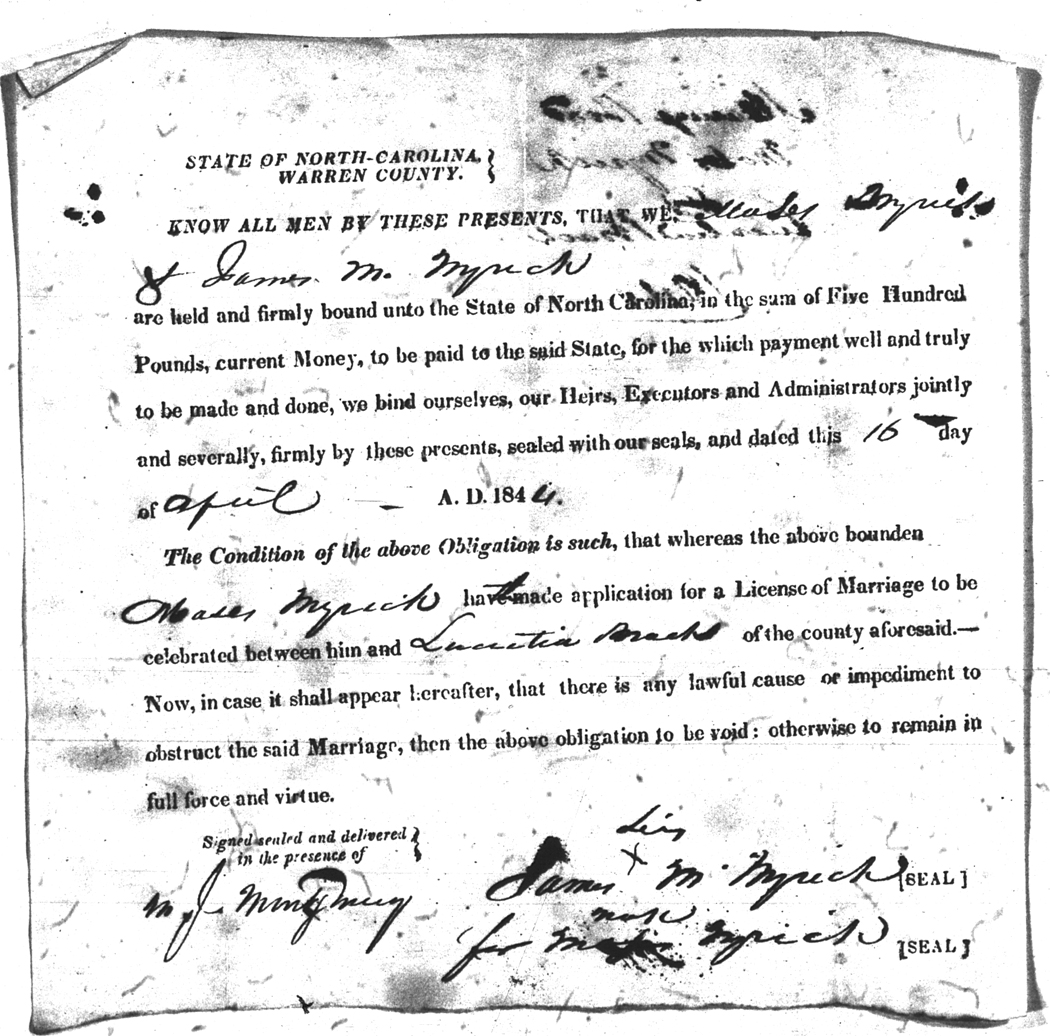 STATE OF NORTH-CAROLINA,
WARREN COUNTY.
KNOW ALL MEN BY THESE PRESENTS, THAT WE, Moses Myrick
& James M. Myrick
are held and firmly bound unto the State of North Carolina, in the sum of Five Hundred
Pounds, current Money, to be paid to the said State, for the which payment well and truly
to be made and done, we bind ourselves, our Heirs, Executors and Administrators jointly
and severally, firmly by these presents, sealed with our seals, and dated this 16 day
of April A. D. 1844.
The Condition of the above Obligation is such, that whereas the above bounden
Moses Myrick hath made application for a License of Marriage to be
celebrated between him and Lucretia of the county aforesaid.—
Now, in case it shall appear hereafter, that there is any lawful cause or impediment to
obstruct the said Marriage, then the above obligation to be void: otherwise to remain in
full force and virtue.
Signed sealed and delivered
in the presence of
his
James x M Myrick [SEAL]
mark
M J Montgomery
for Moses Myrick [SEAL]